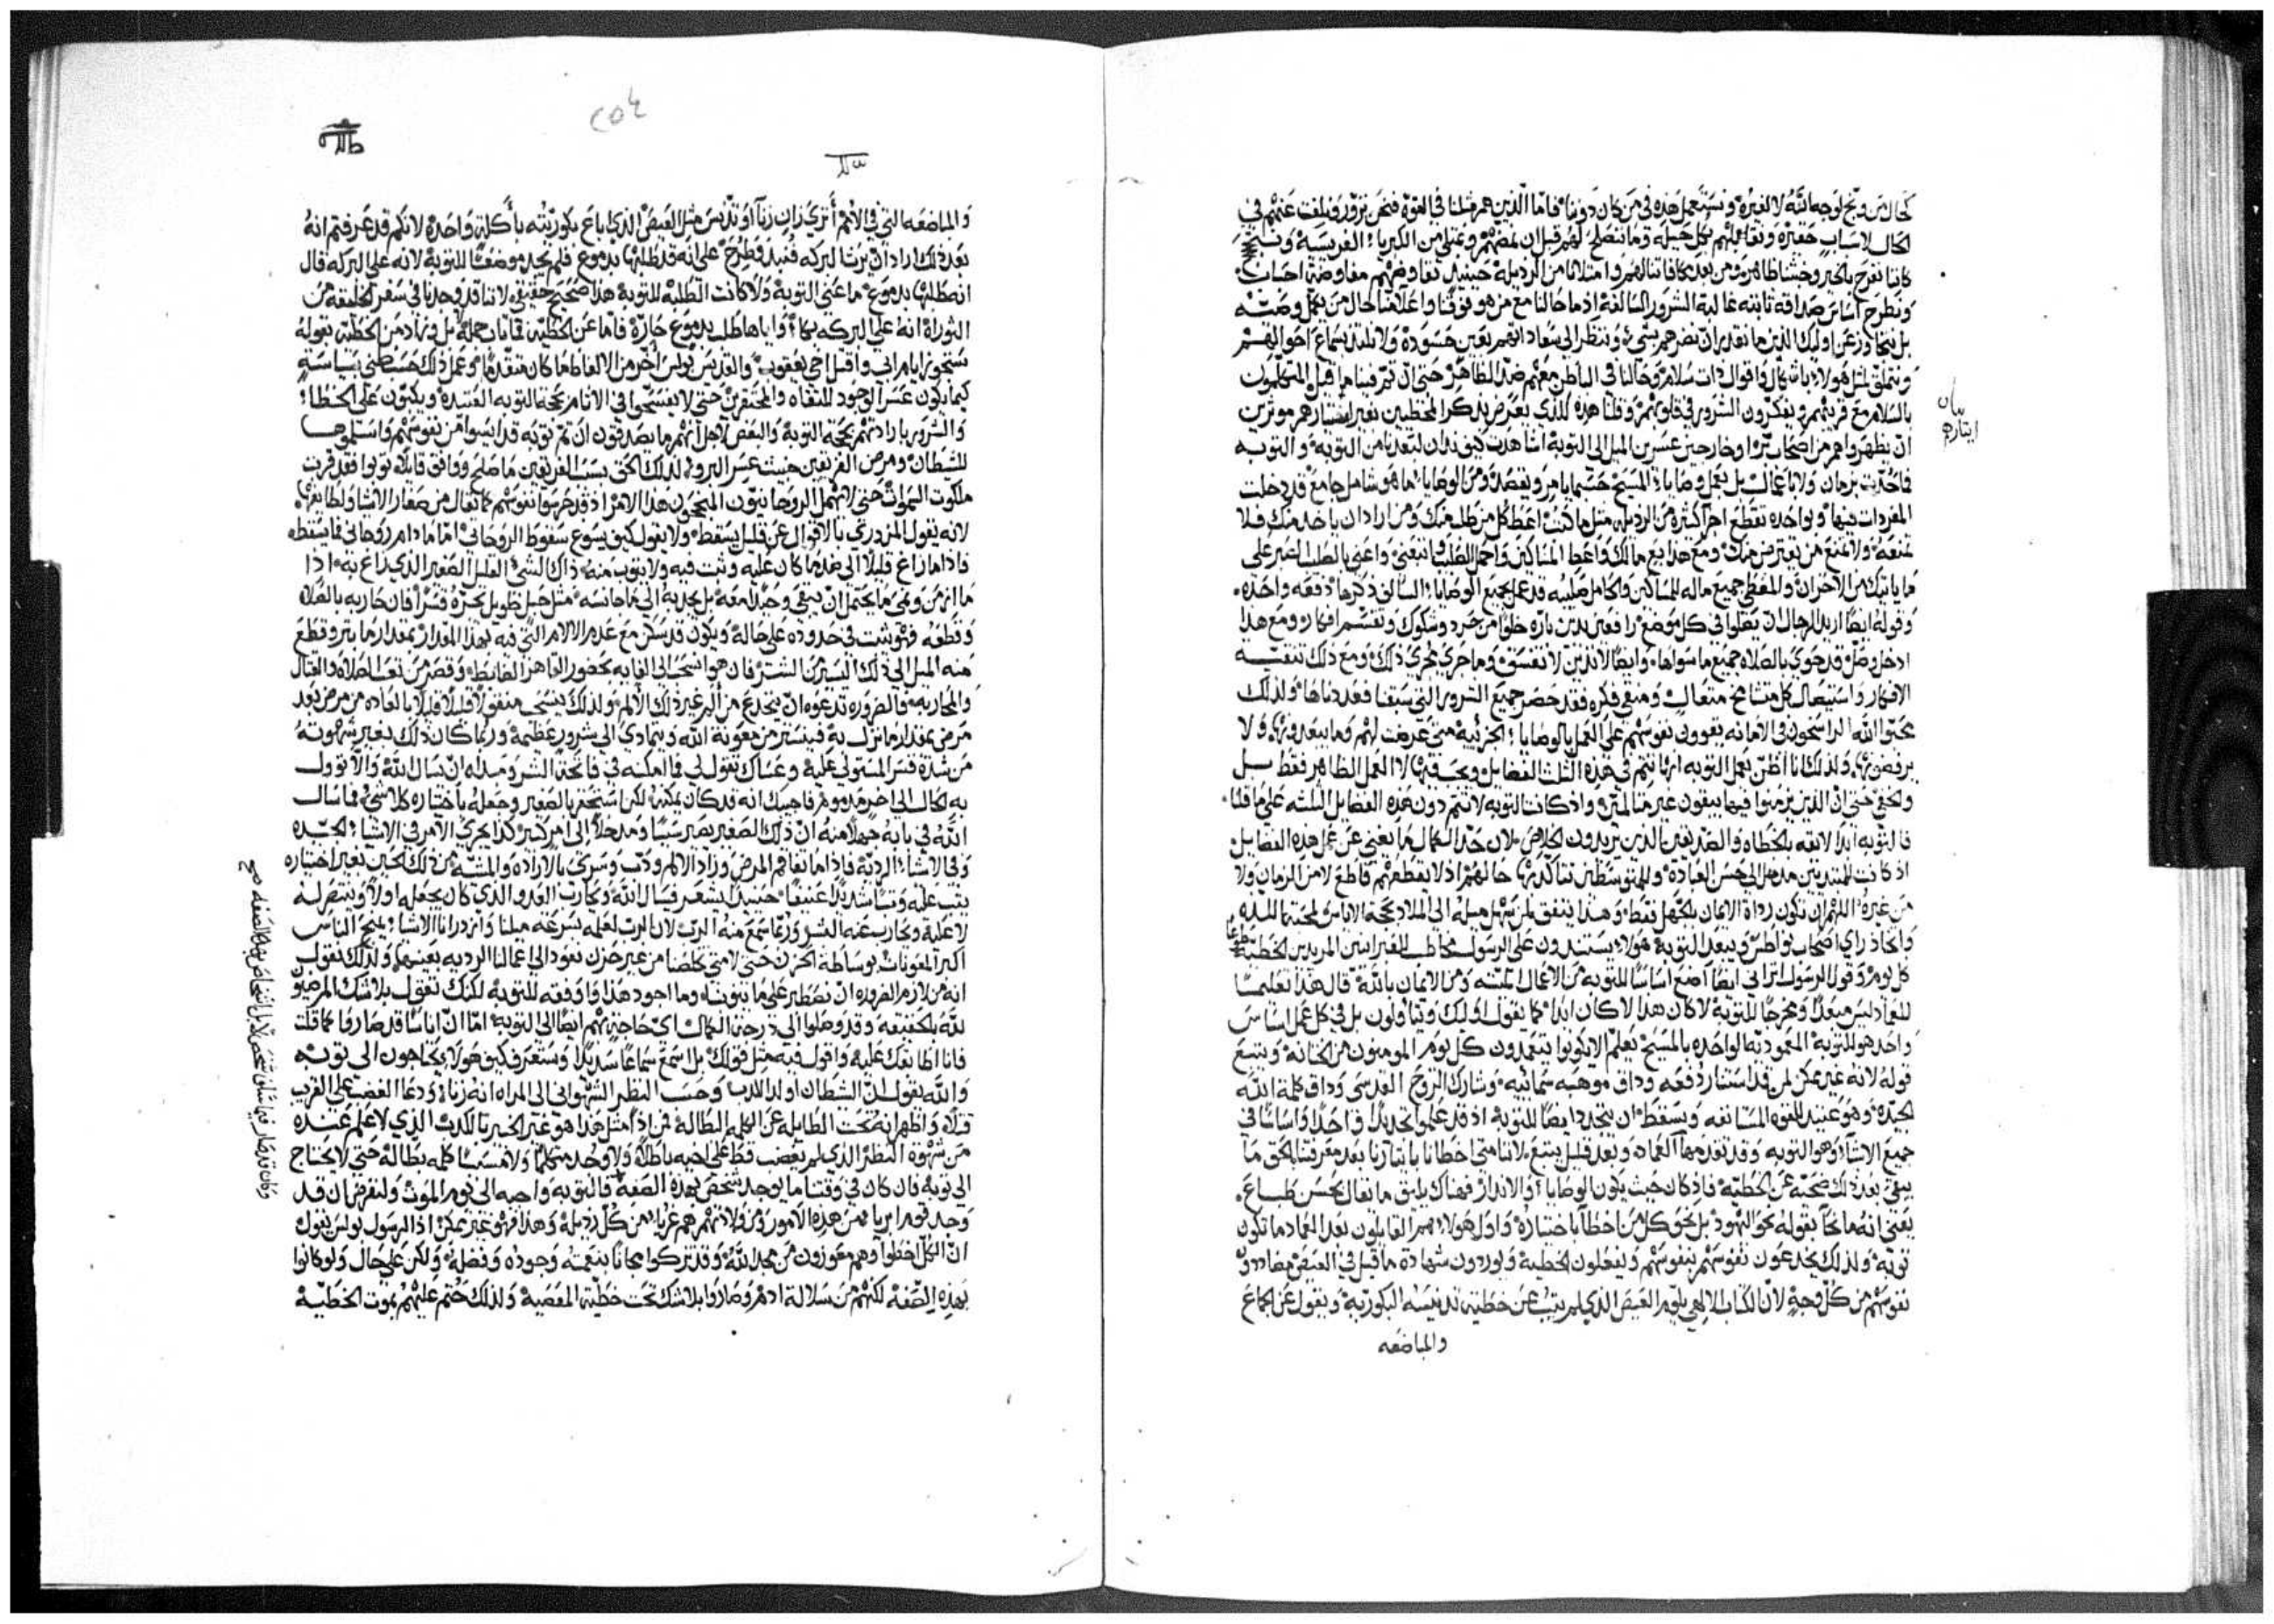 كحال من وبخ لوجه الله لا لغيره ونستعمل هذه في من كان دوننا فاما الذين هم مثلنا في القوة فنحن نزور ونلفت عنهم في
الحال لاسباب حقيره ونقابلهم بكل حيله وما نتصلح لهم قبل ان نمضهم ونمتلي من الكبريا الفريسيه
كاننا نفرح بالخير وخشنا طاهر ومن بعد مكافاتنا لهم وامتلانا من الرذيله حينيذ نفاوضهم مفاوضة احباب
ونطرح اساس صداقه ثابته غالبة الشرور السالفة اذ ما حالنا مع من هو فوقنا واعلا منا حال من يكمل وصيه
بل نتجاوز عن اوليك الذين ما نقدر ان نضرهم بشي وننظر الي سعاداتهم بعين حسوده ولا نلتذ بسماع احوالهم
ونتملق لمثل هولا باشكال واقوال ذات سلام وحالنا في الباطن معهم ضد الظاهر حتي ان تم فينا ما قيل المتكلمون
بالسلام مع قريبهم ويفكرون الشرور في قلوبهم وقلنا هذه للذي يعرض بذكر المخطيين بغير استتارهم موثرين
بيان
ايثاره
ان نظهر واهم من اصحاب بر او خارجين عسرين الميل الي التوبة اشاهدت كيف ندان لبعدنا من التوبة والتوبه
فما تحدت بزمان ولا باعمال بل بعمل وصايا المسيح حسبما يامر ويقصد ومن الوصايا ما هو شامل جامع قد دخلت
المفردات فيها وبواحده تقطع اجزا كثيره من الرذيله مثل ما كتب اعط كل من طلب منك ومن اراد ان ياخذ منك فلا
تمنعه ولا تمنع من يقترض منك ومع هذا بع مالك واعط المساكين واحمل الصليب واتبعني واعني بالصليب الصبر علي
ما ياتيك من الاحزان والمعطي جميع ماله للمساكين والحامل صليبه قد عمل بجميع الوصايا السالف ذكرها دفعه واحده
وقوله ايضا اريد للرجال ان يصلوا في كل موضع رافعين يدين باره خلوا من حرد وشكوك وتقسم افكار ومع هذا
ادخل وصل قد حوي بالصلاه جميع ما سواها وايضا لا تزن لا تفسق وما جري مجري ذلك ومع ذلك تنقيه
الافكار واستيصال كل متشامخ متعال ومنقي فكره فقد حصر جميع الشرور التي سبقنا فعددناها ولذلك
محبوا الله الراسخون في الامانه يقوون نفوسهم علي العمل بالوصايا الجزئية متي عرضت لهم وما يبعدونها ولا
يرفضونها ولذلك انا اظن بعمل التوبه انها تتم في هذه الثلث الفضايل لا العمل الظاهر فقط بل
والخفي حتي ان الذين يزمنوا فيها يبقون غير متالمين واذ كانت التوبة لا تتم دون هذه الفضايل الثلثه علي ما قلنا
فالتوبه ابدا لايقه بالخطاه والصديقين الذين يريدون الخلاص لان حد الكمال ما يغني عن عمل هذه الفضايل
اذ كانت للمبتديين مدخل الي حسن العباده وللمتوسطين نتاكد بها حالهم اذ لا يقطعهم قاطع لا من الزمان ولا
من غيره اللهم ان تكون رداة الايمان بالجهل فقط وهذا يتفق لمن سهل ميله الي الملاذ لمحبة الاناس لمحبتها للذه
واتخاذ راي اصحاب نواطس ويبعد التوبة هولا يستندون علي الرسول مخاطب للعبرانيين المريدين الخطيه
كل يوم وقول الرسول اتراني ايضا اضع اساسا للتوبه من الاعمال الميته ومن الايمان بالله قال هذا تعليما
للعماد ليس مبعدا ومخرجا للتوبة لا كان هذا لا كان ابدا كما تقول اوليك ويتاولون بل في كل عمل اساس
واحد هو للتوبة المعموديه الواحده بالمسيح يعلم الا يكونوا يتعمدون كل يوم المومنون من الختانه ويتبع
قوله لانه غير ممكن لمن قد استنار دفعه وذاق موهبه سمائيه وشارك الروح القدسي وذاق كلمة الله
الجيده وهو عتيد للقوه المستانفه ويسقط ان يتجدد ايضا للتوبة اذ قد علموا تجديدا واحدا واساسا في
جميع الاشيا وهو التوبه وقد تقدمها العماد وبعد قليل يتبع لاننا متي اخطانا بايثارنا بعد معرفتنا الحق ما
يبقي بعد ذلك ضحيه عن الخطيه فاذ كان حيث يكون الوصايا والانذار فهناك يليق ما يقال بحسن طباع
يعني انه ما نحا بقوله نحو اليهود بل نحو كل من اخطا باختياره واول هولا هم القايلون بعد العماد ما تكون
توبه ولذلك يخدعون نفوسهم بنفوسهم ويفعلون الخطية ويوردون شهادة ما قيل في العيص مضاددون
نفوسهم من كل وجه لان الكتاب الالهي يلوم العيص الذي لم يتب عن خطيته تدنيسه البكوريه ويقول عن الجماع
والمباضعه
٢٥٤
والمباضعه التي في الامم أتري زان زنا او تدنس مثل العيص الذي باع بكوريته بأكلة واحدة لانكم قد عرفتم انه
بعد ذلك اراد ان يرث البركه فنبذ وطرح علي انه قد طلبها بدموع فلم يجد موضعا للتوبة لانه علي البركه قال
انه طلبها بدموع ما عني التوبة ولا كانت الطلبه للتوبة هذا صحيح حقيقي لاننا قد وجدنا في سفر الخليقه من
التوراة انه علي البركه بكا واياها طلب بدموع حارة فاما عن الخطيه فما تاب جمله بل وزاد من الخطيه بقوله
ستجوز ايام ابي واقتل اخي يعقوب والقديس بولس اخر من الالفاظ ما كان متقدما وعمل ذلك حسب ظني بسياسة
كيما يكون عسر الوجود للنقاه والمحتقرين حتي لا يفسحوا في الاثام بحجة التوبه المفسده ويكبون علي الخطا
والشرور بارادتهم بحجة التوبة والبعض لاجل انهم ما يصدقون ان ثم توبه قد ايسوا من نفوسهم واسلموها
للشيطان ومرض الفريقين خبيث عسر البرو لذلك الحق بسبب الفريقين ما صلح ووافق قايلا توبوا فقد قربت
ملكوت السموات حتي لا يهمل الروحانيون المنتجحون هذا الامر اذ قد حرسوا نفوسهم كما يقال من صغار الاشيا ولطايفها
لانه يقول المزدري بالاقوال عن قليل يسقط ولا يقول كيف يسوع سقوط الروحاني اما ما دام روحاني فما يسقط
فاذا ما زاغ قليلا الي ضد ما كان عليه وثبت فيه ولا يتوب منه ذاك الشي القليل الصغير الذي زاغ به اذا
ما ازمن ونمي ما يحتمل ان يبقي وحيدا معه بل يجذبه الي ما جانسه مثل حبل طويل يجره قسرا فان حاربه بالصلاه
وقطعه فهو يثبت في حدوده علي حاله ويكون قد سكن مع عدم الالام التي فيه بهذا المقدار بمقدار ما بتر وقطع
منه الميل الي ذلك اليسير من الشر فان هو انسحب الي الغايه بحضور القاهر الضابط وقصر من تعب الصلاه والقتال
والمحاربه فالضروره تدعوه ان ينخدع من ألم غير ذلك الألم ولذلك ينسحب متفق قليلا قليلا بالعاده من مرض بعد
مرض بمقدار ما نزل به فيبتر من معونة الله ويتمادي الي شرور عظيمة وربما كان ذلك بغير شهوته
من شدة قسر المستولي عليه وعساك تقول لي فما امكنه في فاتحة الشر ومبداه ان يسال الله والا توول
به الحال الي اخر مذموم فاجيبك انه قد كان يمكنه لكن استحقر بالصغير وجعله باختياره كلا شي فما سال
الله في بابه جهلا منه ان ذاك الصغير يصير سببا ومدخلا الي امر كبير كذا يجري الامر في الاشيا الجيده
وفي الاشيا الرديه فاذا ما تفاقم المرض وزاد الالم ودب وسري بالارادة والمشيه من ذلك الحين بغير اختياره
يثب عليه وثبا شديدا عنيفا حينيذ يشعر فيسال الله ويحارب العدو الذي كان يجعله اولا وينتصر له
لا عليه ويحارب عنه الشر وربما سمع منه الرب لان الرب لعلمه بسرعة ميلنا وازدراانا الاشيا يمنح الناس
اكبر المعونات بوساطة الحزن حتي لا متي خلصنا من غير حزن نعود الي اعمالنا الرديه بعينها ولذلك نقول
انه من لازم الضروره ان نصطبر علي ما ينوبنا وما اجود هذا واوفقه للتوبة لكنك تقول بلا شك المرضيون
لله بالحقيقه وقد وصلوا الي درجة الكمال اي حاجة بهم ايضا الي التوبة اما ان اناسا قد صاروا كما قلت
فانا اطابقك عليه واقول فيه مثل قولك بل اسمع سماعا سديدا وستعرف كيف هولا يحتاجون الي توبه
والله يقول ان الشيطان اولد الكذب وحسب النظر الشهواني الي المراه انه زناء ودعا الغضب علي القريب
قتلا واظهر انه تحت الطايله عن الكلمه البطاله فمن اذا مثل هذا هو غير الخبير بالكذب الذي لا علم عنده
من شهوة النظر الذي لم يغضب قط علي اخيه باطلا ولا وجد متكلما ولا متسببا كلمه بطالة حتي لا يحتاج
الي توبة فان كان في وقتنا ما يوجد شخص بهذه الصفة فالتوبه واجبه الي يوم الموت ولنفرض ان قد
وجد قوم ابريا من هذه الامور ومن ولادتهم هم غربا من كل رذيلة وهذا فهو غير ممكن اذ الرسول بولس يقول
ان الكل اخطوا وهم معوزون من مجد الله وقد تزكوا مجانا بنعمته وجوده وفضله ولكن علي حال ولو كانوا
بهذه الصفه لكنهم من سلالة ادم وصاروا بلا شك تحت خطية المعصية ولذلك ختم عليهم بموت الخطية